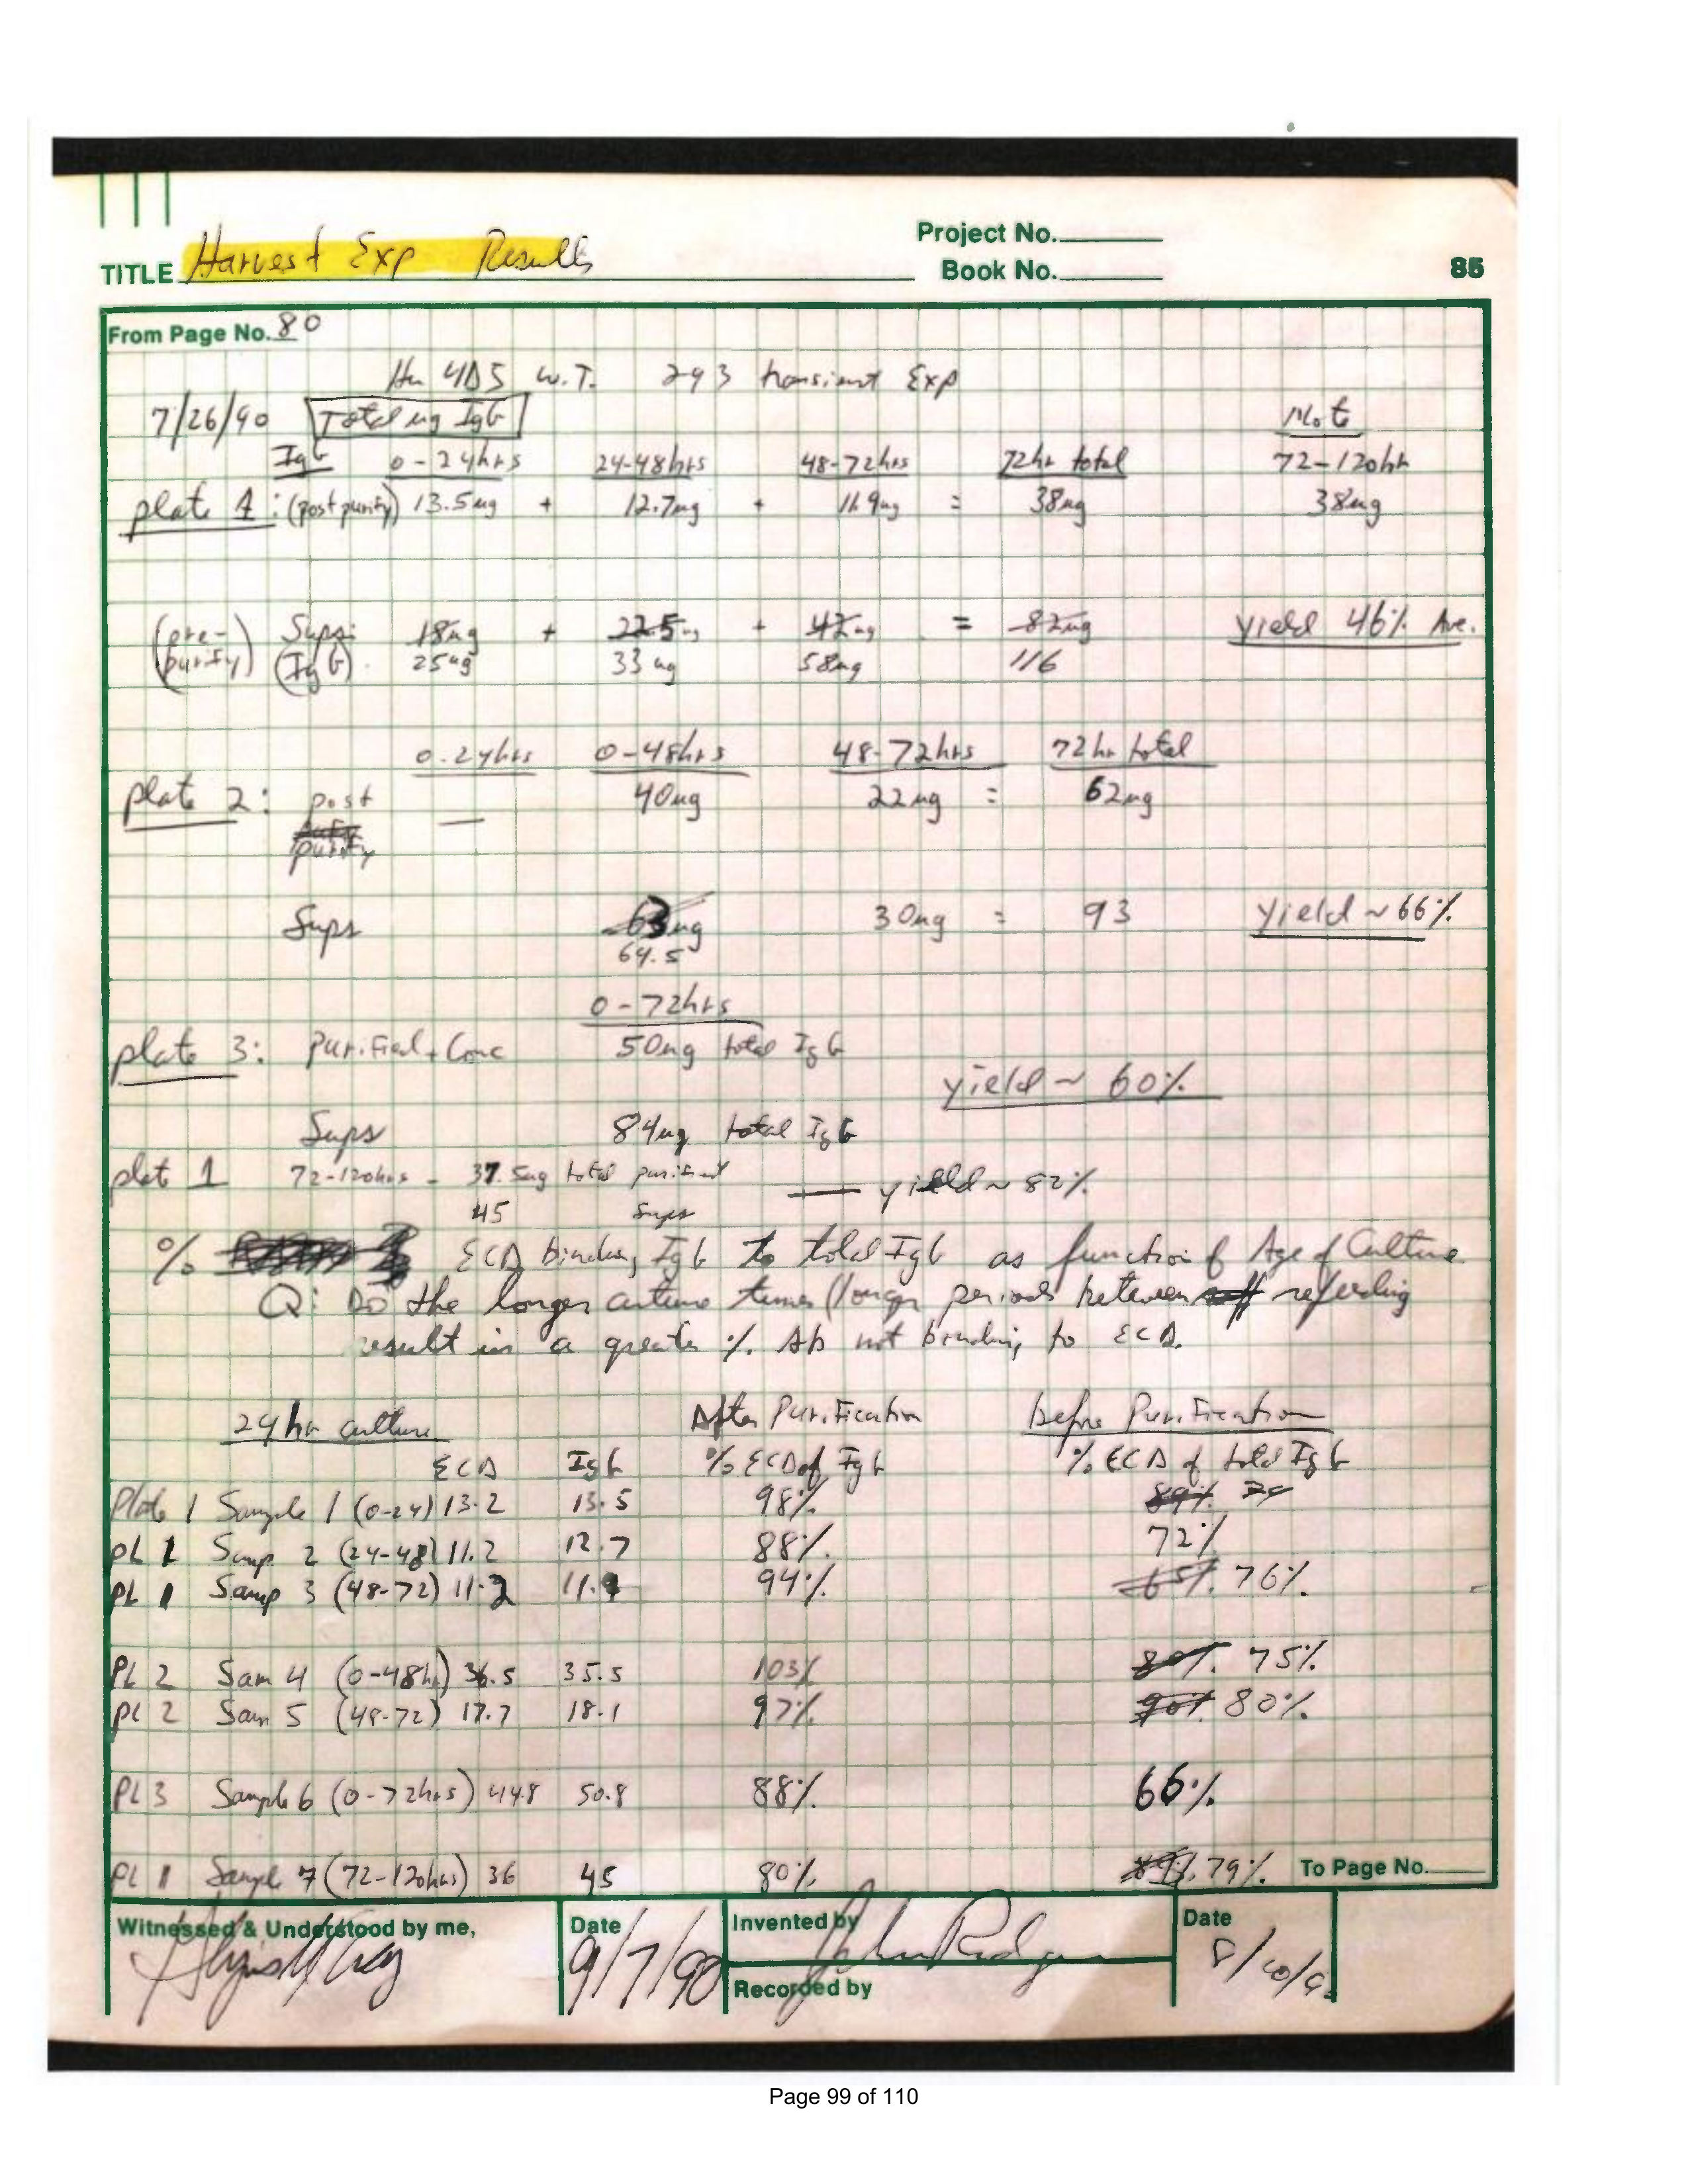 Project No.
TITLE Harvest Exp Results
Book No.
85
From Page No. 80
Hu 4D5 W.T. 293 transient Exp
7/26/90 Total ug IgG
IgG 0-24hrs 24-48hrs 48-72hrs 72hr total 72-120hr
plate 1: (post purify) 13.5ug + 12.7ug + 11.9ug = 38ug 38ug
(pre- Sups: 18ug + 22.5 + 42ug = 82ug yield 46% Ave.
purify) (IgG) 25ug 33 ug 58ug 116
0-24hrs 0-48hrs 48-72hrs 72hr total
plate 2: post — 40ug 22ug = 62ug
purify
Sups 63ug 30ug = 93 yield ~ 66%
64.5
0-72hrs
plate 3: Purified + Conc 50ug total IgG
yield ~ 60%
Sups 84ug total IgG
plat 1 72-120hrs - 37.5ug total purified — yield ~ 82%
45 Sups
% ECD binding IgG to total IgG as function of Age of Culture
Q: Do the longer culture times (longer periods between refeeding
result in a greater % Ab not binding to ECD.
24 hr culture After Purification before Purification
ECD IgG % ECD of IgG % ECD of total IgG
Plate 1 Sample 1 (0-24) 13.2 13.5 98% 89%
PL 1 Samp 2 (24-48) 11.2 12.7 88% 72%
PL 1 Samp 3 (48-72) 11.2 11.9 94% 65% 76%
PL 2 Sam 4 (0-48hr) 36.5 35.5 103% 80% 75%
PL 2 Sam 5 (48-72) 17.7 18.1 97% 90% 80%
PL 3 Sample 6 (0-72hrs) 44.8 50.8 88% 66%
PL 1 Sample 7 (72-120hrs) 36 45 80% 79% To Page No.
Witnessed & Understood by me,
Date
9/7/90
Invented by
Recorded by
Date
Page 99 of 110